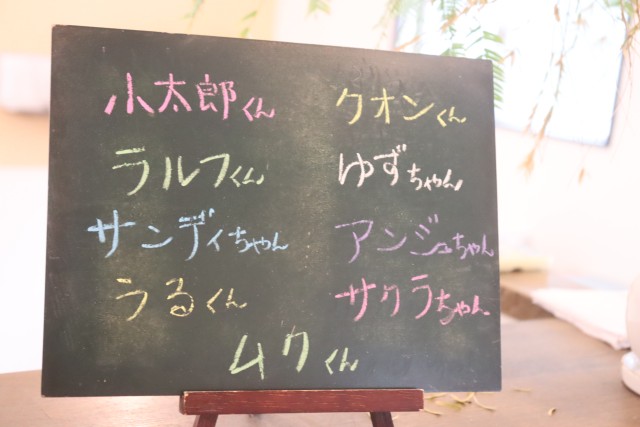 小太郎くん クオンくん
ラルフくん ゆずちゃん
サンディちゃん アンジュちゃん
うるくん サクラちゃん
ムクくん